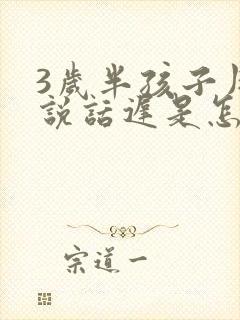 3歲半孩子
說話遲是怎
宗道一